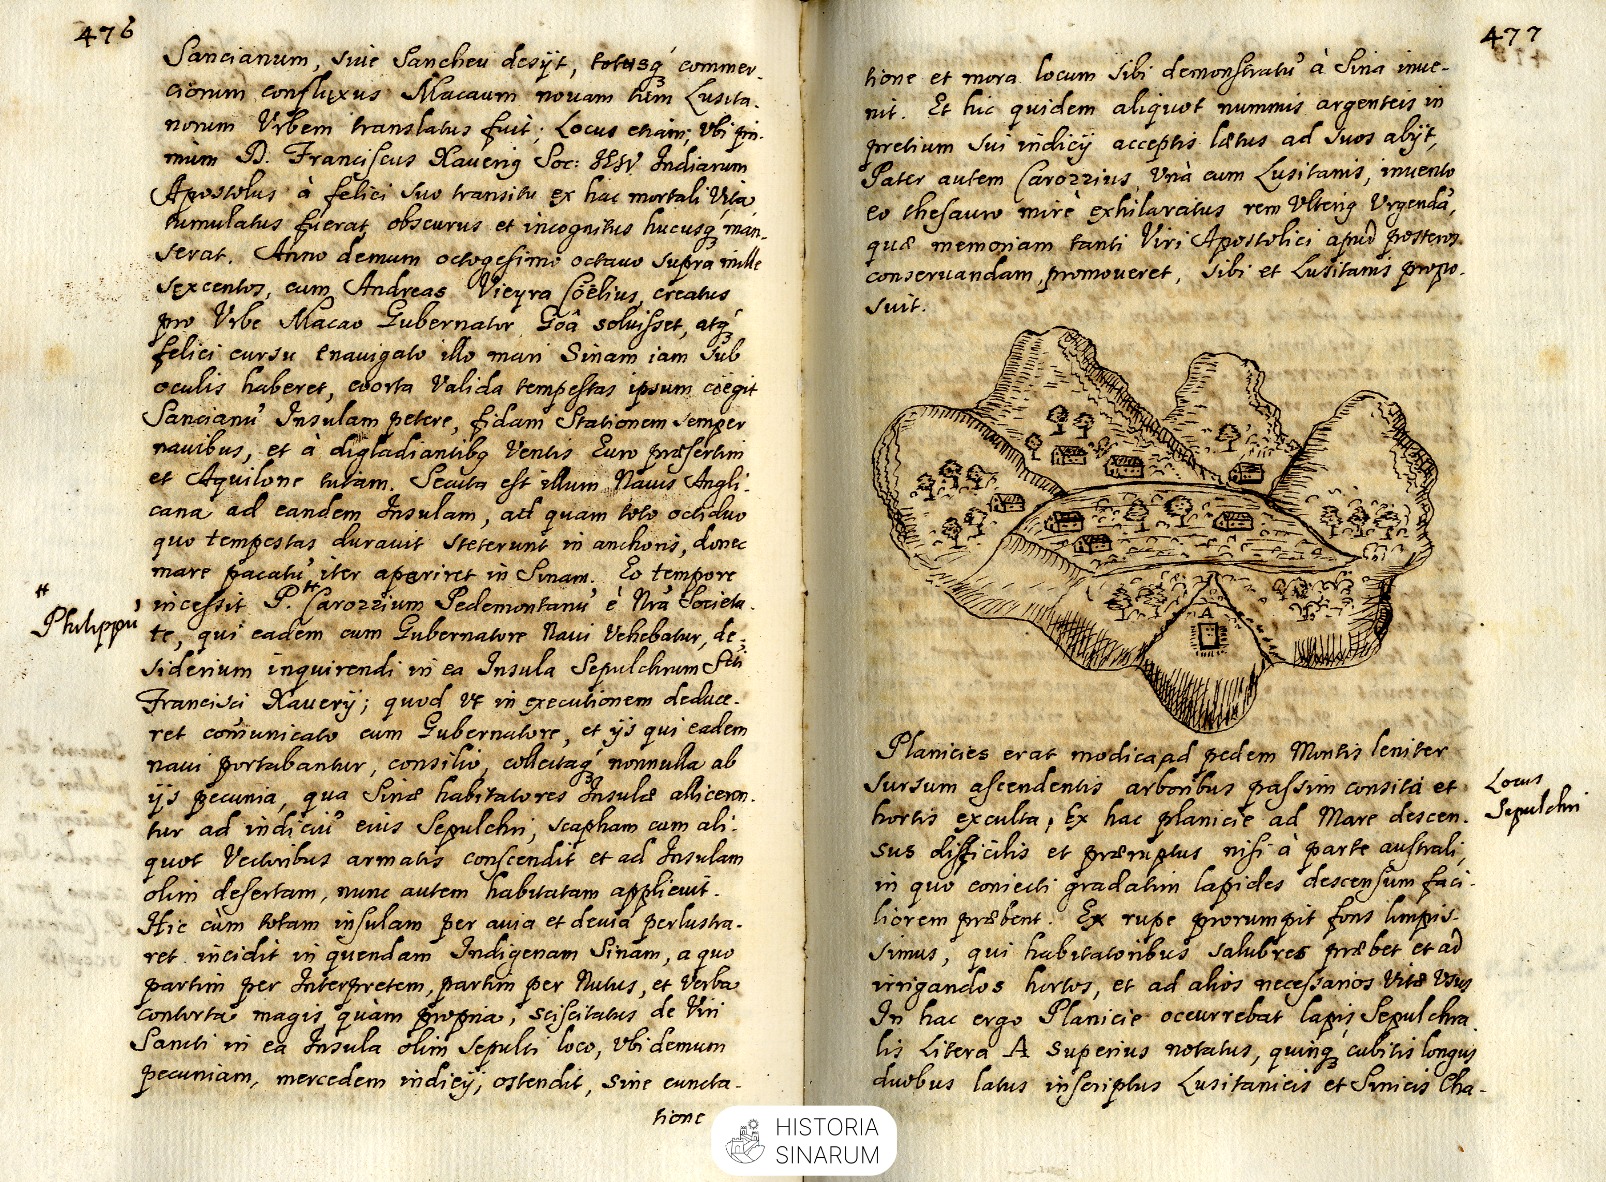 476
Sancianum, siue Sancheu desijt, totusq́ commer-
ciorum confluxus Macaum nouam tùm Lusita-
norum Vrbem translatus fuit; Locus etiam, vbi pri-
mùm D. Franciscus Xauerig Soc: IESV Indiarum
Apostolus à felici suo transitu ex hac mortali Vita
tumulatus fuerat, obscurus et incognitus hucusq́ man-
serat. Anno demum octogesimo octauo supra mille
sexcentos, cum Andreas Vieyra Coëlius, creatus
pro Vrbe Macao Gubernator Goâ soluisset, atq́
felici cursu enauigato illo mari Sinam iam sub
oculis haberet, coorta Valida tempestas ipsum coëgit
Sancianũ Insulam petere, fidam Stationem semper
nauibus, et à digladiantibq Ventis Euro præsertim
et Aquilone tutam. Secuta est illum Nauis Angli-
cana ad eandem Insulam, ad quam toto octiduo
quo tempestas durauit steterunt in anchoris, donec
mare pacatũ iter aperiret in Sinam. Eo tempore
incessit P. # Carozzium Pedemontanũ è Nrã Societa-
# Philippũ
te, qui eadem cum Gubernatore Naui Vehebatur, de-
siderium inquirendi in ea Insula Sepulchrum Sti
Francisci Xauerij; quod vt in executionem deduce-
ret com̃unicato cum Gubernatore, et ijs qui eadem
naui portabantur, consilio, collectaq́ nonnulla ab
ijs pecunia, qua Sinæ habitatores Insulæ allicerен-
tur ad indiciũ eius Sepulchri, scapham cum ali-
quot Vectoribus armatis conscendit et ad Insulam
olim desertam, nunc autem habitatam applicuit.
Hic cùm totam insulam per auia et deuia perlustra-
ret incidit in quendam Indigenam Sinam, a quo
partim per Interpretem, partim per Nutus, et Verba
contorta magis quàm propria, sciscitatus de Viri
Sancti in ea Insula olim Sepulti loco, vbi demum
pecuniam, mercedem indicij, ostendit, sine cuncta-
tione
477
tione et mora locum sibi demonstratũ à Sina inue-
nit. Et hic quidem aliquot nummis argenteis in
pretium sui indicij acceptis lætus ad suos abijt,
Pater autem Carozzius, vnà cum Lusitanis, inuento
eo thesauro mirè exhilaratus rem vlterig vrgendã,
quæ memoriam tanti Viri Apostolici apud posteros
conseruandam, promoueret, sibi et Lusitanis propo-
suit.
A
Planicies erat modica, ad pedem Montis leniter
sursum ascendentis arboribus passim consita et
Locus
Sepulchri
hortis exculta, Ex hac planicie ad Mare descen-
sus difficilis et præruptus nisi à parte australi,
in quo coniecti gradatim lapides descensum faci-
liorem præbent. Ex rupe prorumpit fons limpis-
simus, qui habitatoribus salubres præbet et ad
irrigandos hortos, et ad alios necessarios Vitæ Vsus
In hac ergo Planicie occurrebat lapis Sepulchra
lis Litera A superius notatus, quinq́ cubitis longus
duobus latus inscriptus Lusitanicis et Sinicis Cha-
HISTORIA
SINARUM